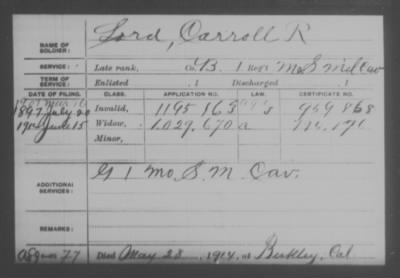 NAME OF SOLDIER: Lord, Carroll R
SERVICE: Late rank, Co. B. 1 Reg't Mo S Mil Cav
TERM OF SERVICE: Enlisted , 1 Discharged , 1
DATE OF FILING. CLASS. APPLICATION NO. LAW. CERTIFICATE NO.
1897 July 20 Invalid, 1195 163 959 868
1914 June 15 Widow, 1.029.670
Minor,
ADDITIONAL SERVICES: G 1 Mo. S. M. Cav.
REMARKS:
77 Died May 23 1914, at Berkley, Cal